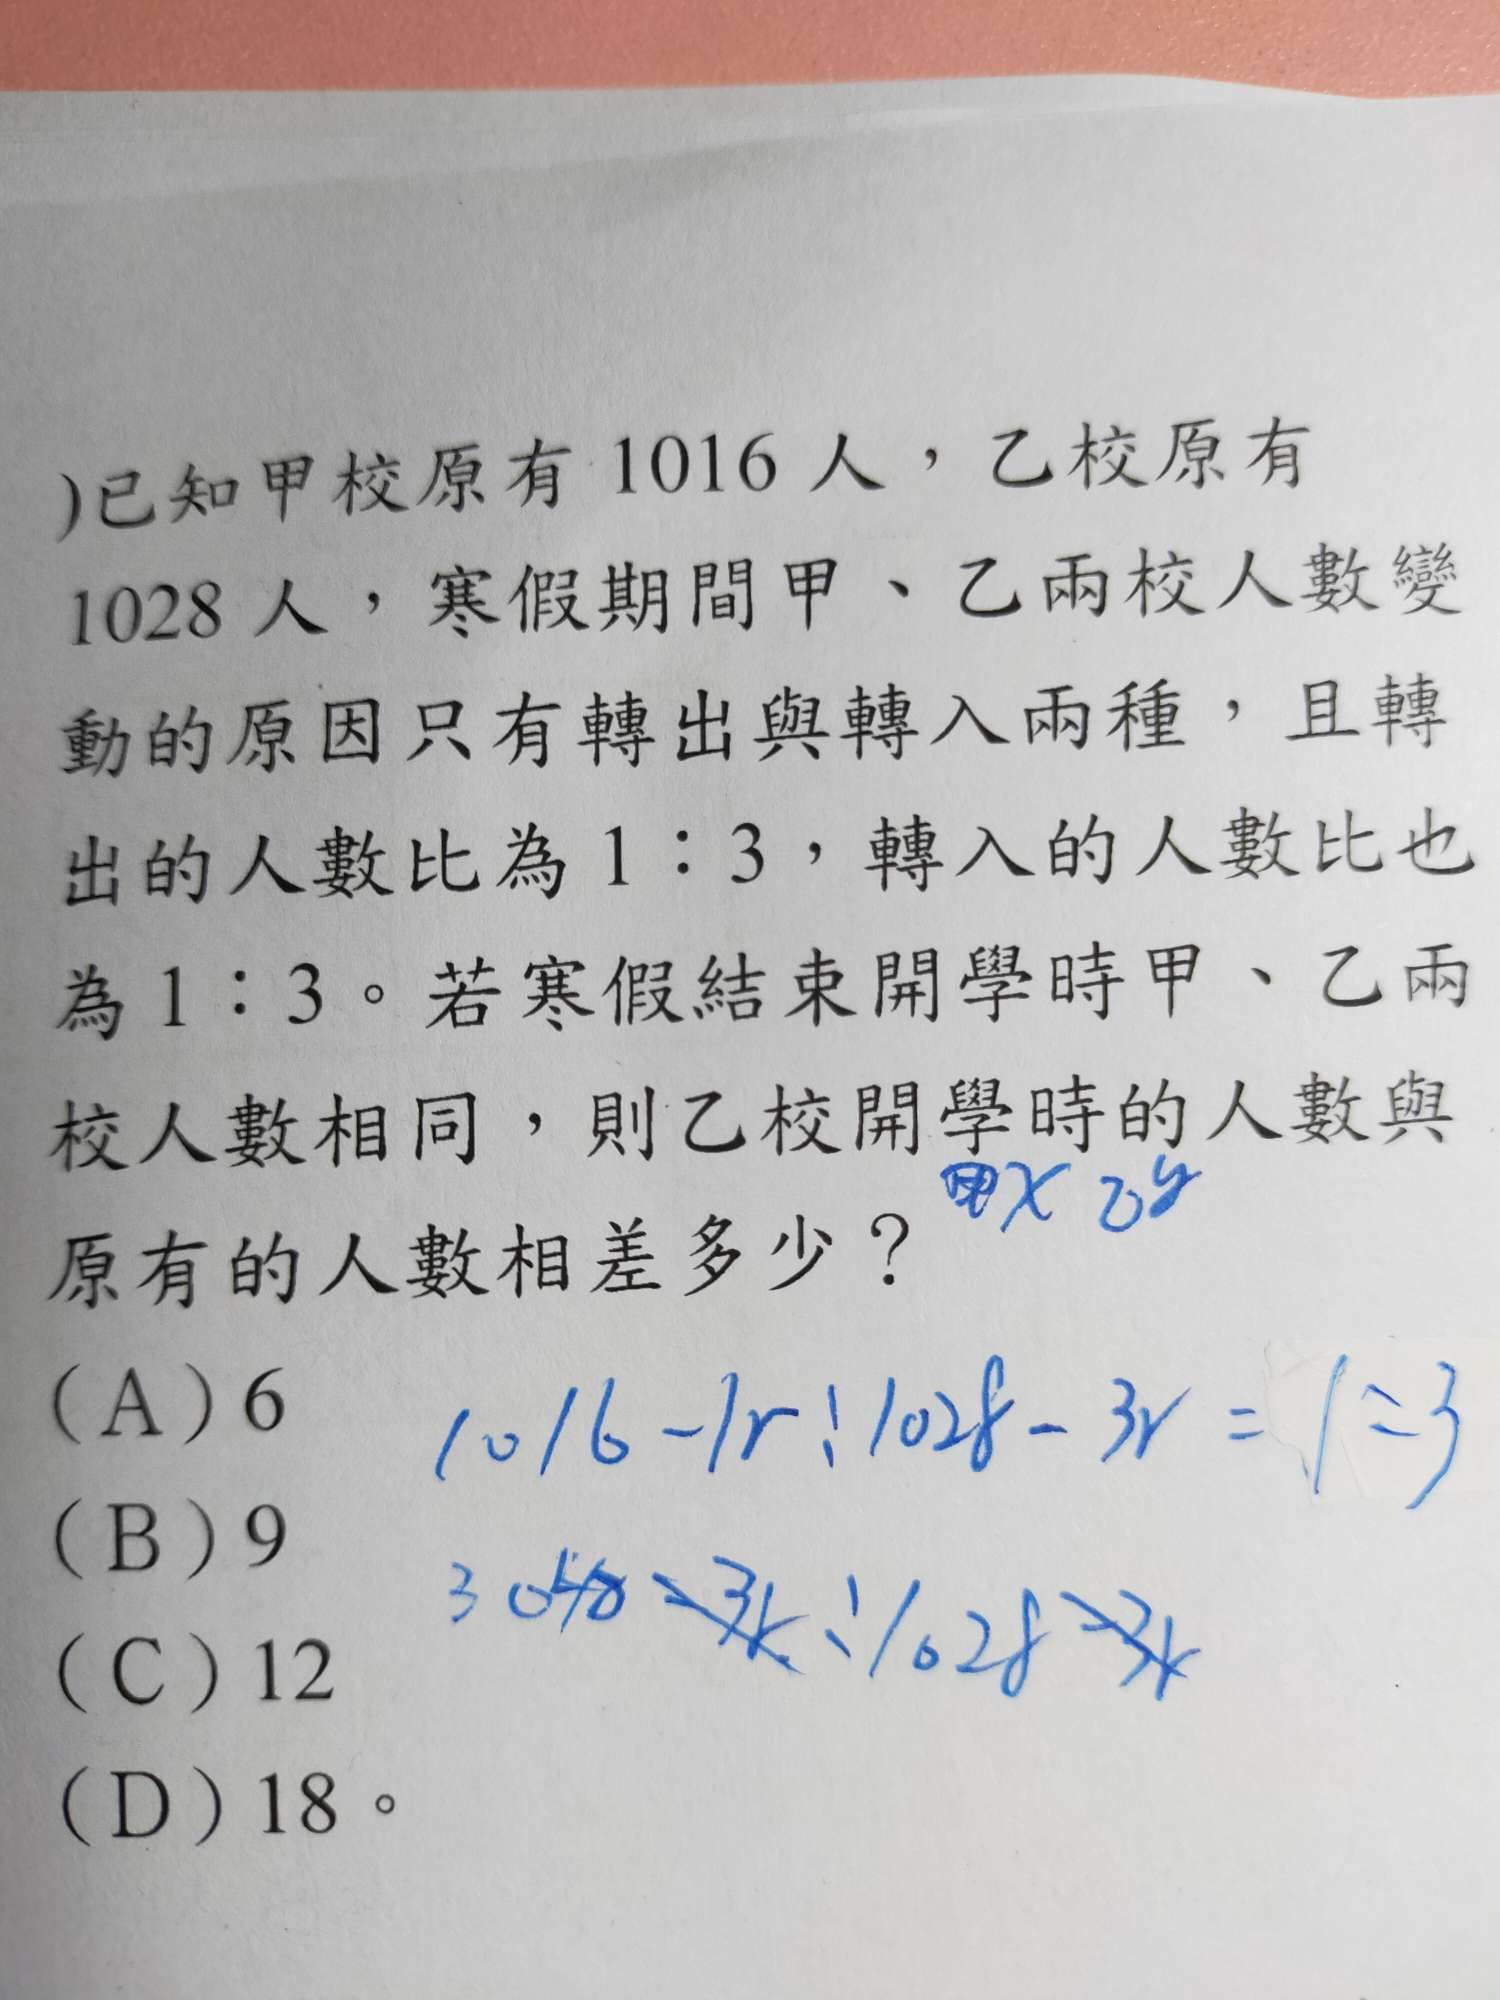 )已知甲校原有 1016 人，乙校原有
1028 人，寒假期間甲、乙兩校人數變
動的原因只有轉出與轉入兩種，且轉
出的人數比為 1：3，轉入的人數比也
為 1：3。若寒假結束開學時甲、乙兩
校人數相同，則乙校開學時的人數與
甲x 乙y
原有的人數相差多少？
(A) 6
1016-1r:1028-3r=1:3
(B) 9
(C) 12
(D) 18。